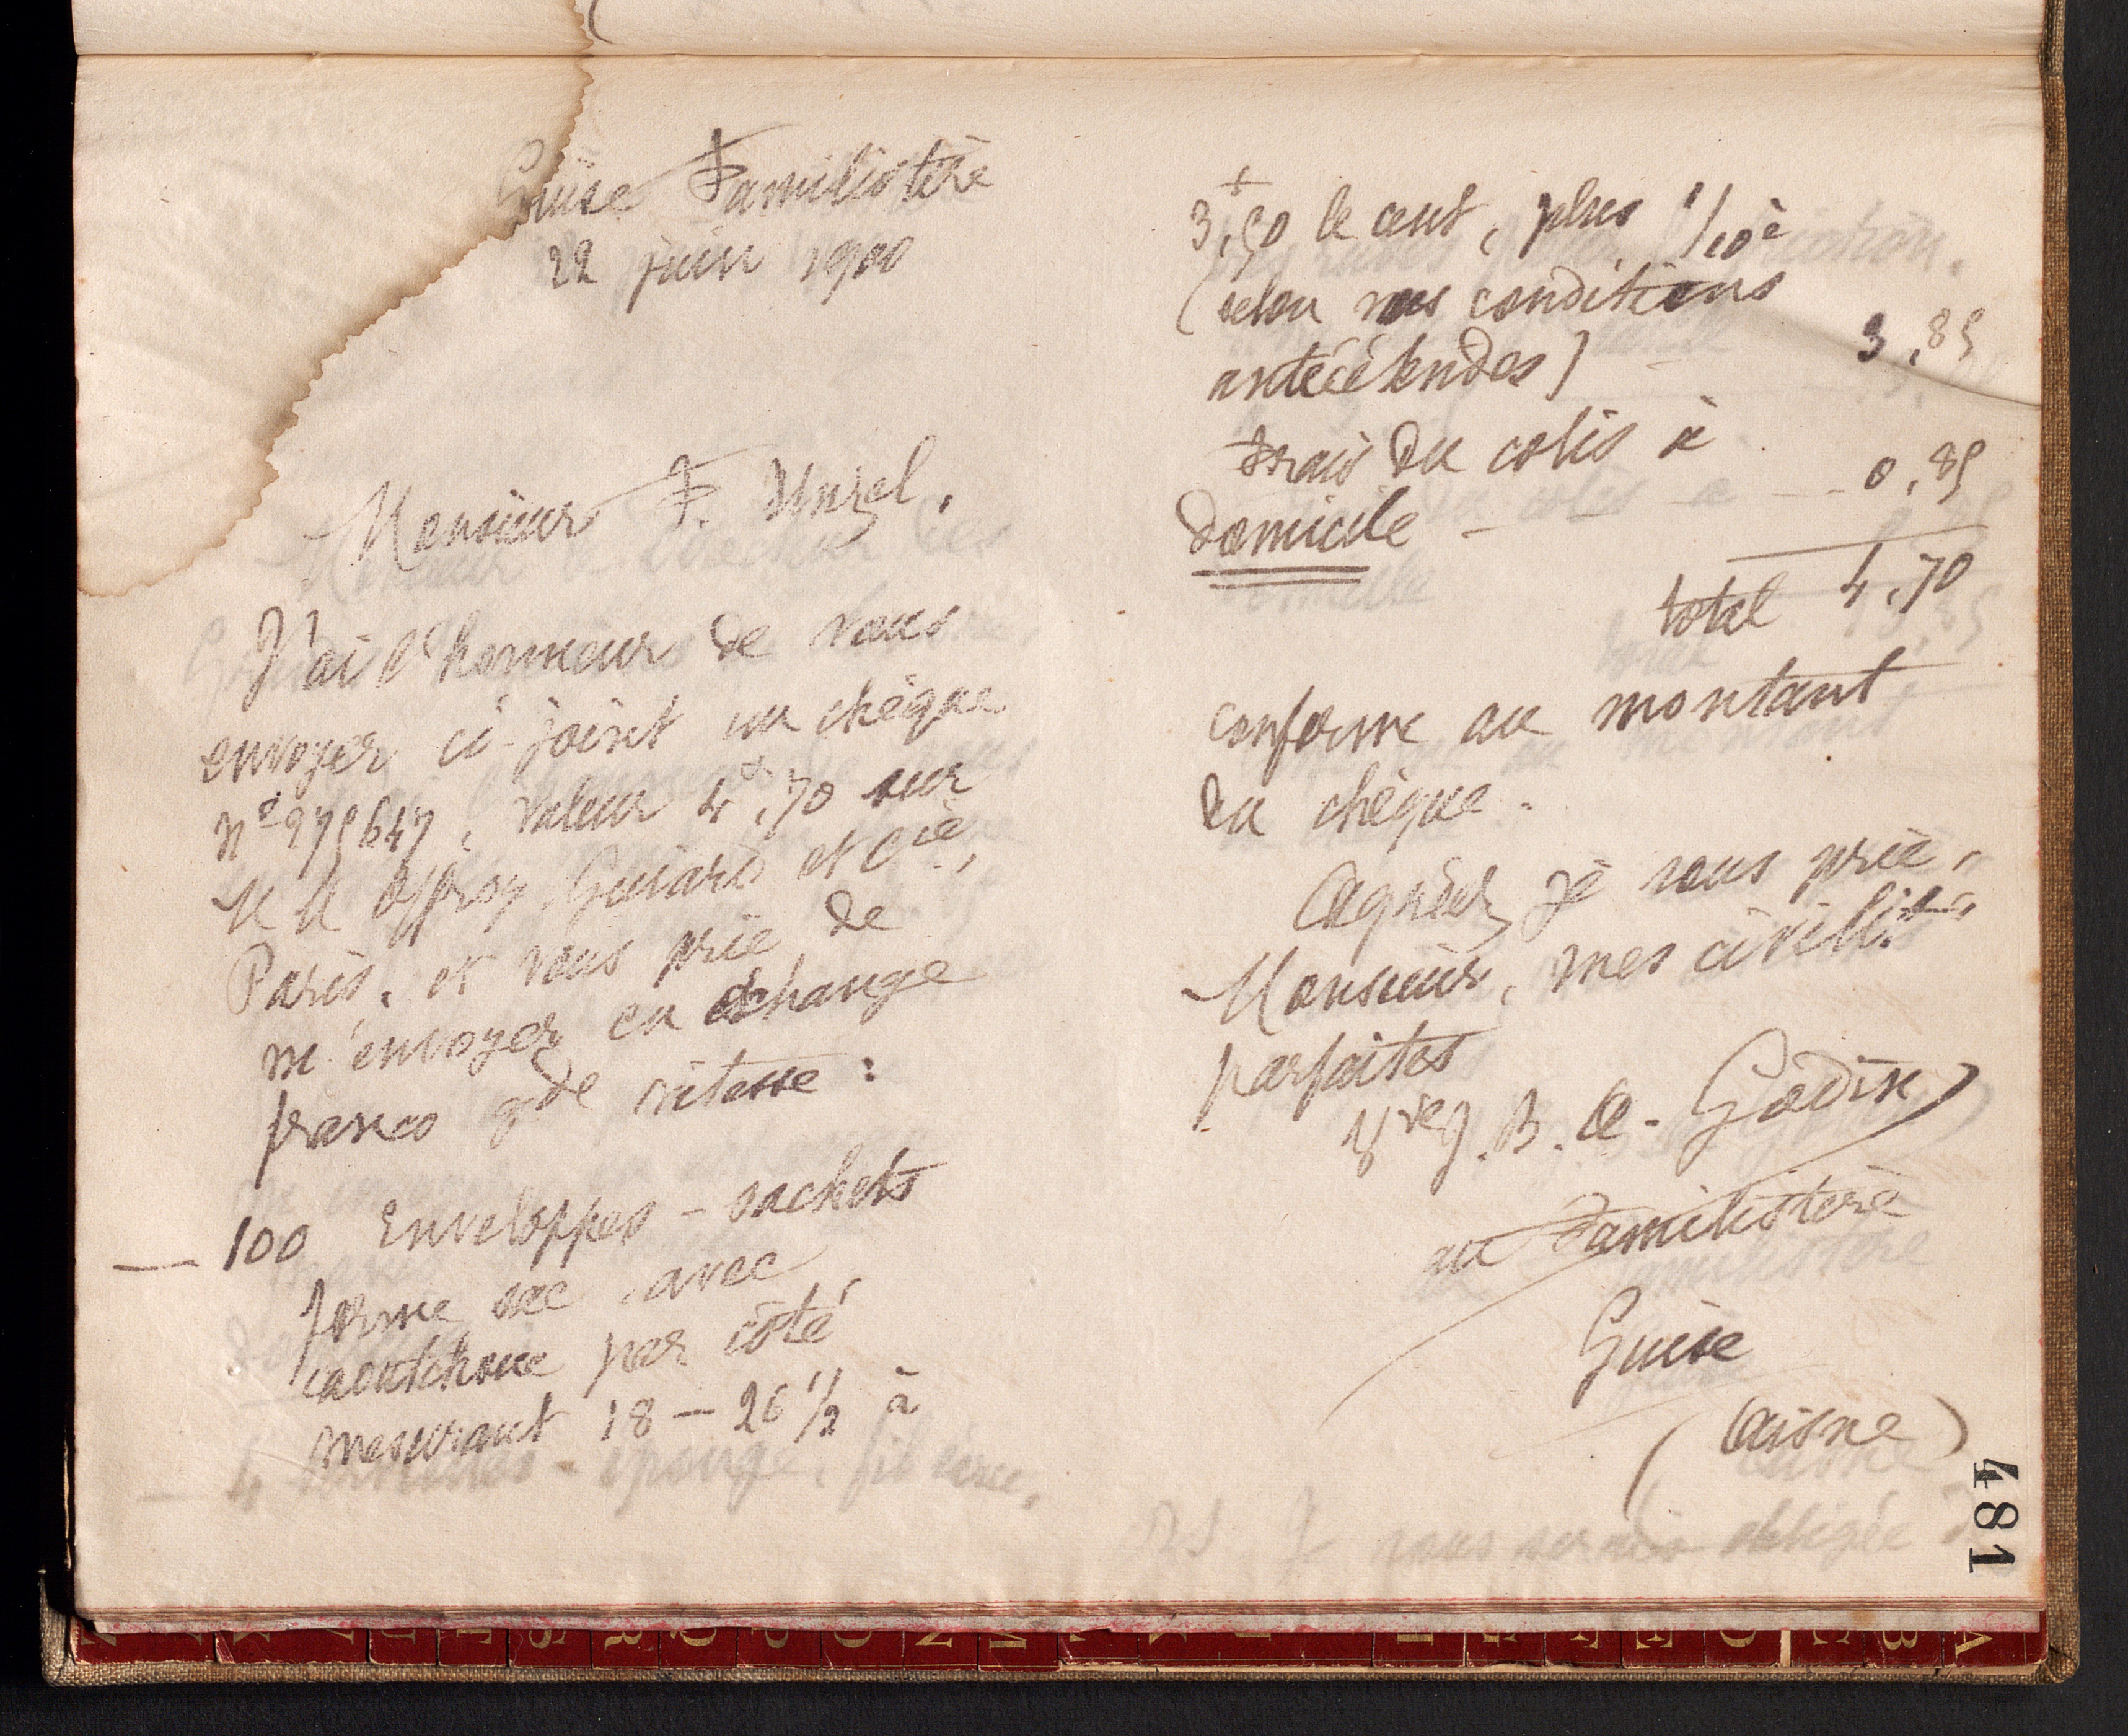 Guise Familistère
22 juin 1900
Monsieur F. Unzel.
J'ai l'honneur de vous
envoyer ci-joint un chèque
Nº 975647, valeur 4f,70 sur
M M Offroy, Guiard et Cie,
Paris, et vous prie de
m'envoyer en échange
franco gde vitesse :
— 100 Enveloppes-sachets
forme sac avec
caoutchouc par côté
mesurant 18 — 26 1/2 à
3f,50 le cent, plus 1/10è
(selon vos conditions
antécédendes) 3,85
Frais du colis à
domicile — — 0,85
total 4,70
conforme au montant
du chèque.
Agréez, je vous prie,
Monsieur, mes civilités
parfaites
Vve J. B. A. Godin
au Familistère
Guise
(Aisne)
481